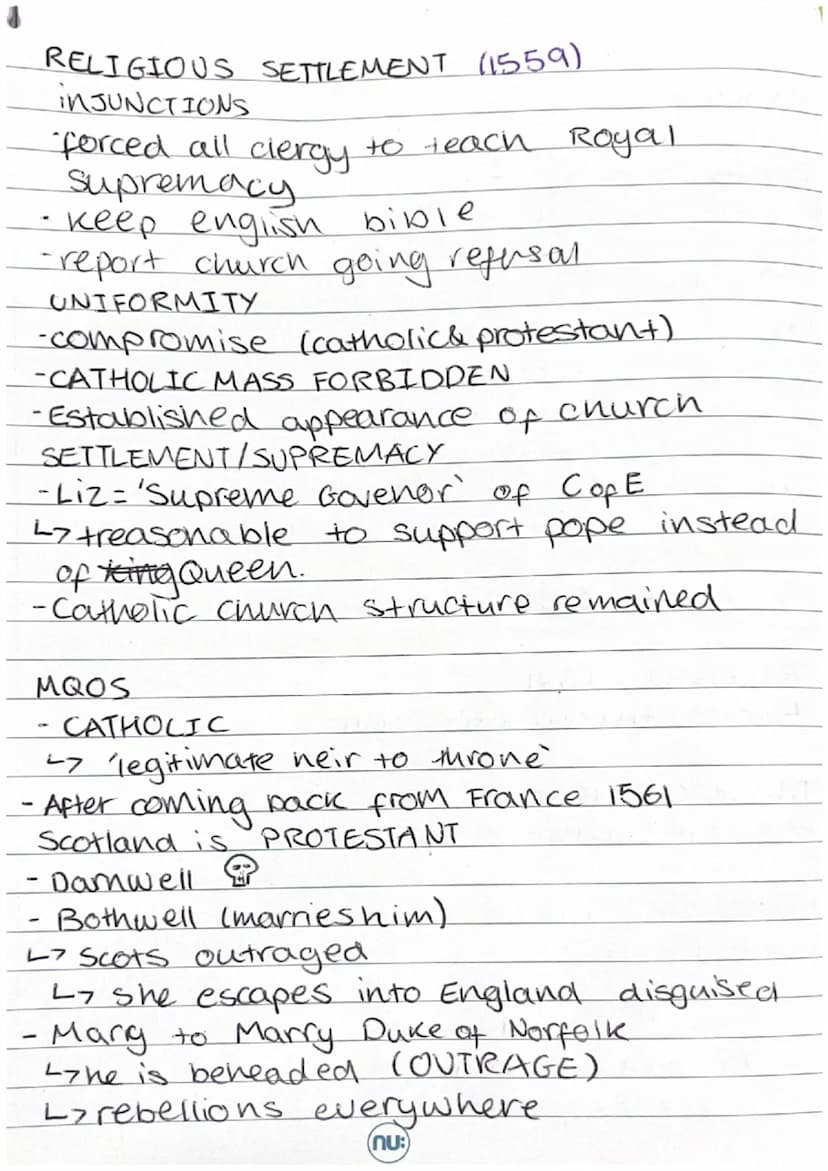 RELIGIOUS SETTLEMENT (1559)
INJUNCTIONS
·forced all clergy to teach Royal
Supremacy
· keep english bible
-report church going refusal
UNIFORMITY
-compromise (catholic & protestant)
-CATHOLIC MASS FORBIDDEN
-Established appearance of church
SETTLEMENT/SUPREMACY
-Liz = 'Supreme Govenor' of C of E
↳ treasonable to support pope instead
of king Queen.
-Catholic church structure remained
MQOS
- CATHOLIC
↳ 'legitimate heir to throne'
- After coming back from France 1561
Scotland is PROTESTANT
- Darnwell
- Bothwell (marries him)
↳ Scots outraged
↳ she escapes into England disguised
- Mary to Marry Duke of Norfolk
↳ he is beheaded (OUTRAGE)
↳ rebellions everywhere
nu: